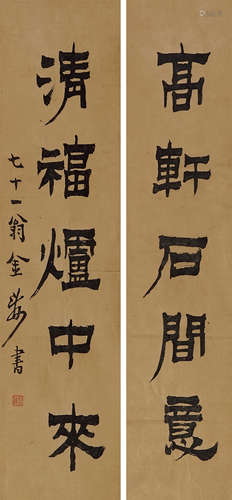 高軒石間意
清福爐中來
七十一翁金農書